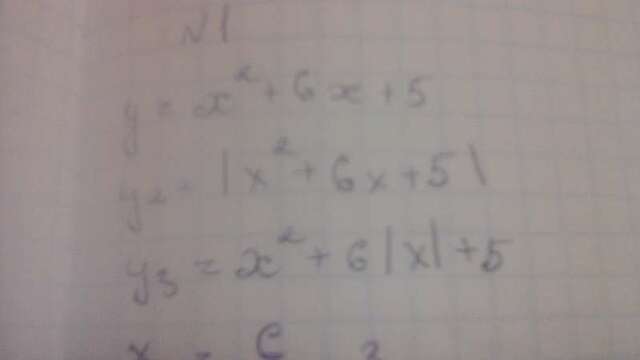 №1
y = x² + 6x + 5
y₂ = |x² + 6x + 5|
y₃ = x² + 6|x| + 5